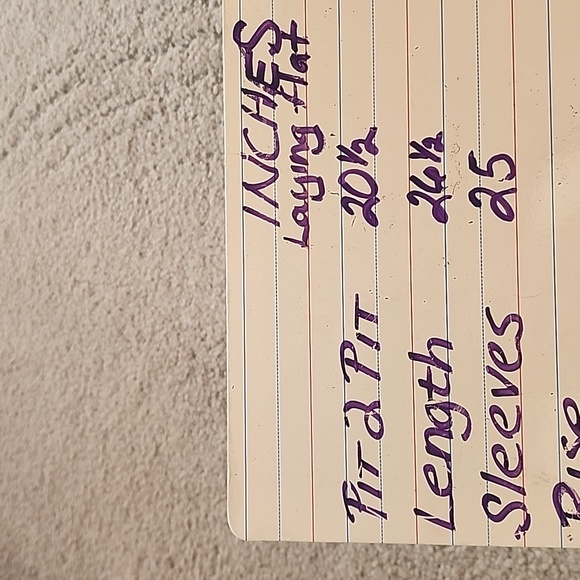 INCHES
Laying flat
PIT 2 PIT 20 1/2
Length 26 1/2
Sleeves 25
Rise